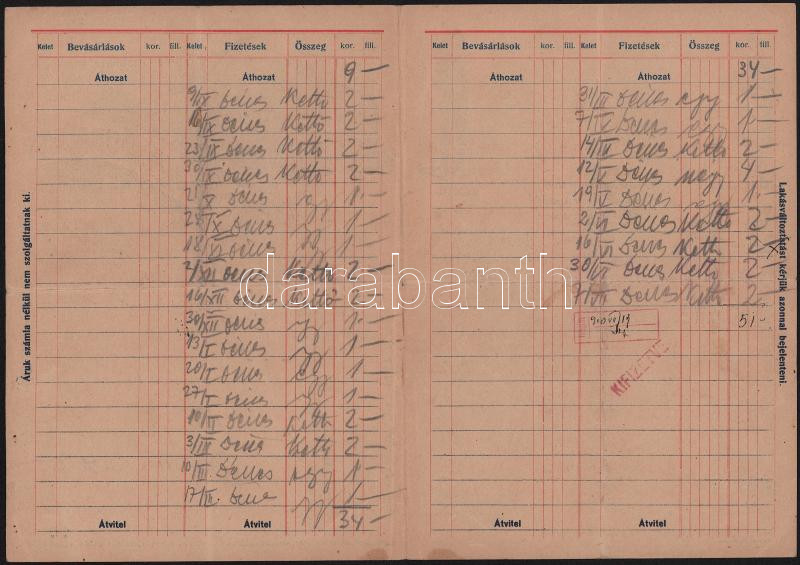 Kelet Bevásárlások kor. fill. Kelet Fizetések Összeg kor. fill.
Áthozat Áthozat 9—
9/IX Dénes Kettő 2—
16/IX Dénes Kettő 2—
23/IX Dénes Kettő 2—
30/IX Dénes Kettő 2—
21/X Dénes egy 1—
28/X Dénes egy 1—
18/XI Dénes egy 1—
2/XII Dénes Kettő 2—
16/XII Dénes Kettő 2—
30/XII Dénes egy 1—
13/I Dénes egy 1—
20/I Dénes egy 1—
27/I Dénes egy 1—
10/II Dénes Kettő 2—
3/III Dénes Kettő 2—
10/III. Dénes egy 1—
17/III. Dénes egy 1—
34—
Átvitel Átvitel
Áruk számla nélkül nem szolgáltatnak ki.
Kelet Bevásárlások kor. fill. Kelet Fizetések Összeg kor. fill.
Áthozat Áthozat 34—
31/III Dénes egy 1—
7/IV Dénes egy 1—
14/IV Dénes Kettő 2—
12/V Dénes négy 4—
19/V Dénes egy 1—
2/VI Dénes Kettő 2—
16/VI Dénes Kettő 2—
30/VI Dénes Kettő 2—
7/VII Dénes Kettő 2—
51.—
KIFIZETVE
Átvitel Átvitel
Lakásváltoztatást kérjük azonnal bejelenteni.
darabanth